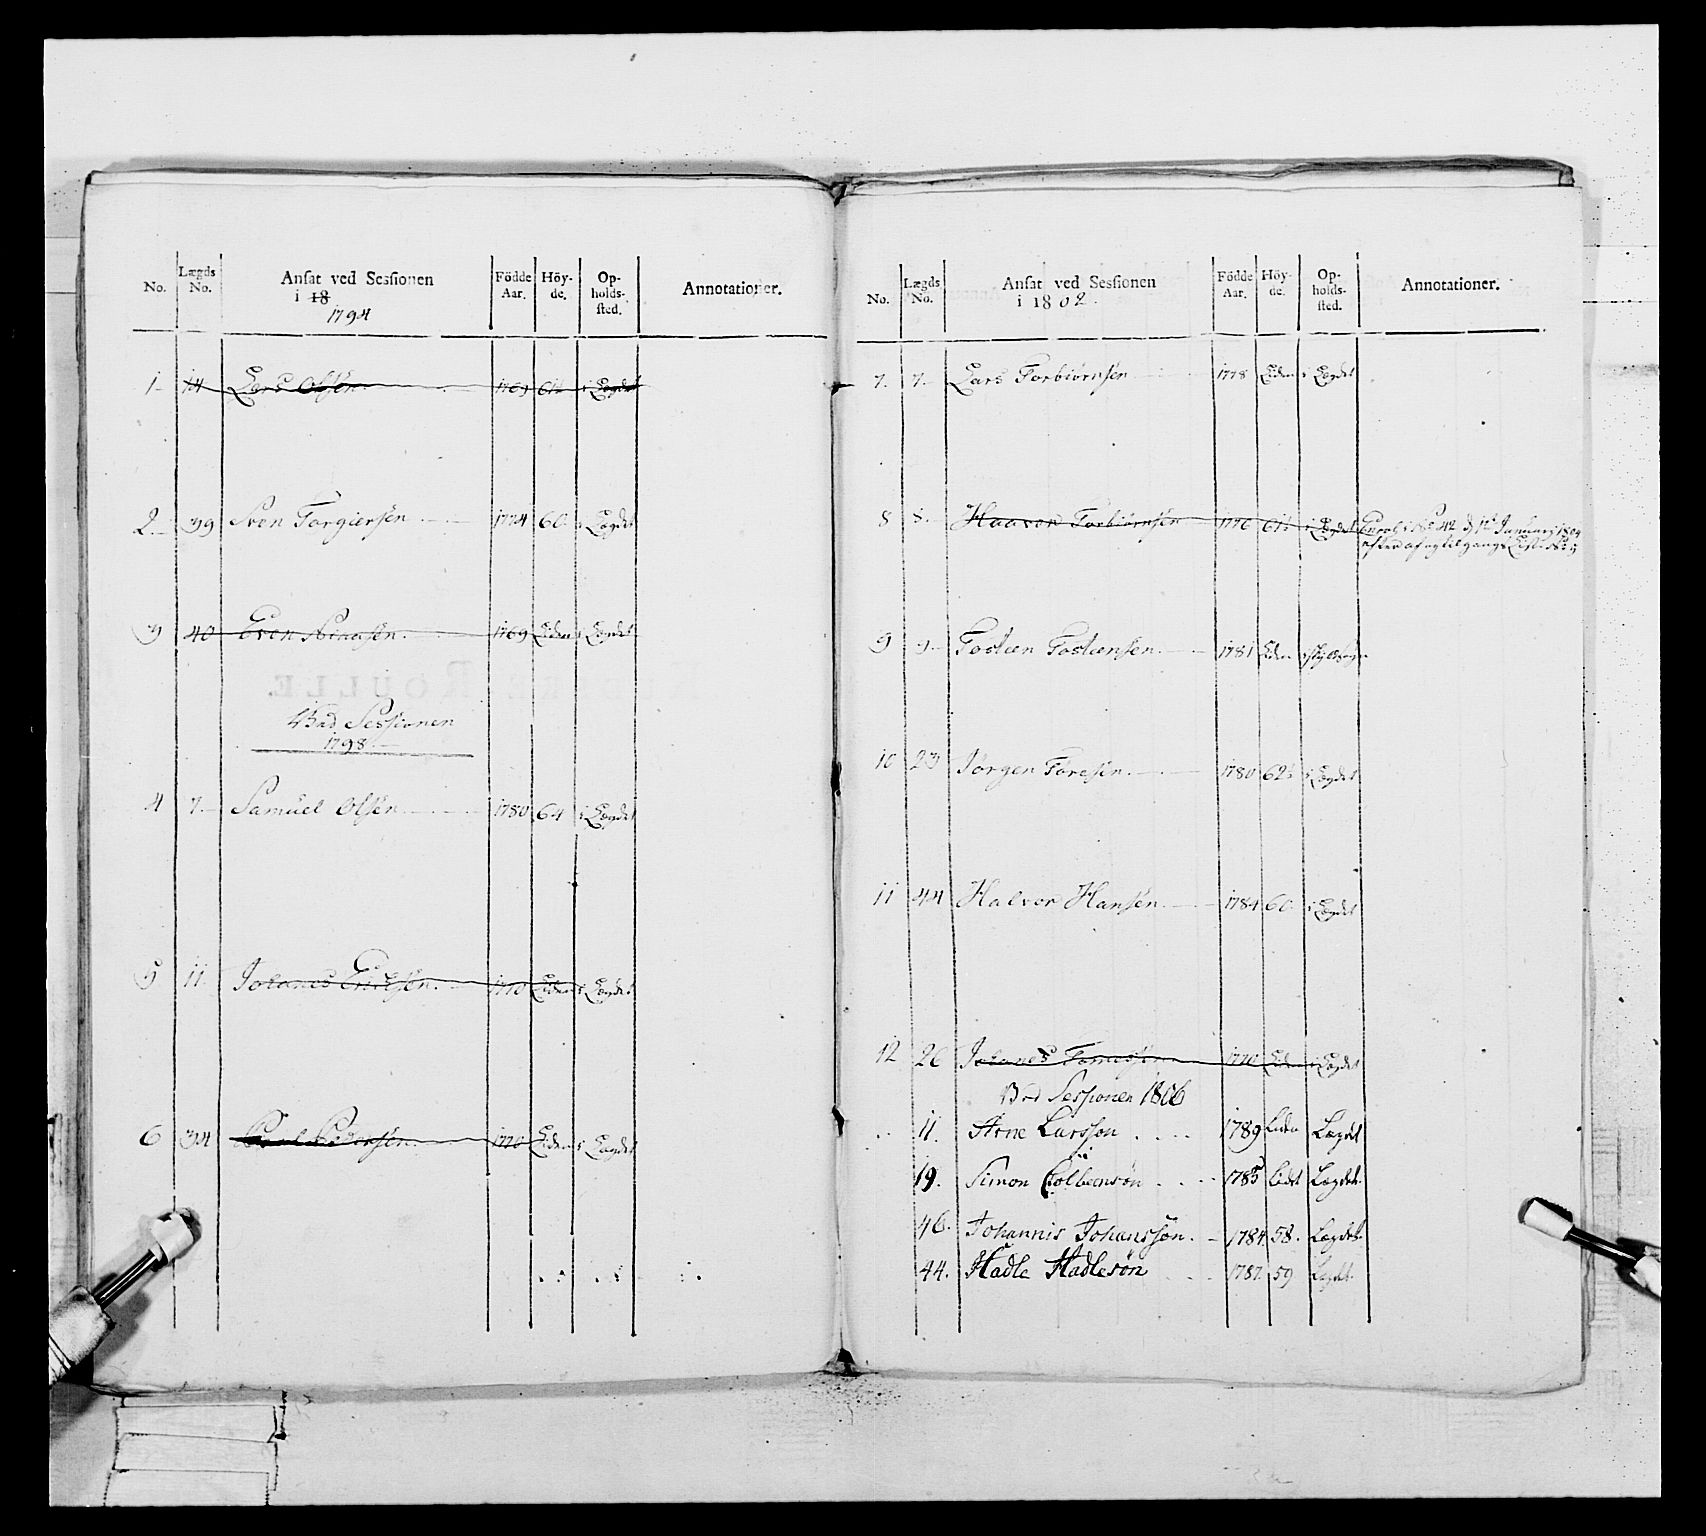 No. Lægds No. Ansat ved Sessionen i 18 1794 Födde Aar. Höyde. Opholdssted. Annotationer.
1 14 Lars Olsen 1769 61½ i Lægdet
2 39 Sven Torgiersen 1774 60 i Lægdet
3 40 Even 1769 Liden i Lægdet
Ved Sessionen
1798
4 7 Samuel Olsen 1780 64 i Lægdet
5 11 Johanes Erichsen 1770 Liden i Lægdet
6 34 Pedersen 1770 Liden i Lægdet
No. Lægds No. Ansat ved Sessionen i 1802. Födde Aar. Höyde. Opholdssted. Annotationer.
7. 7. Lars Torbiørnsen 1778 Liden i Lægdet
8 8. Haavor Torbiørnsen 1776 61½ i Lægdet Januarj 1804
9 9 Tostæn Tostænsen 1781 Liden
10 23 Jørgen Toresen 1780 62½ i Lægdet
11 44 Halvor Hansen 1784 60 i Lægdet
12 26 Johanes 1770 Liden i Lægdet
Ved Sessionen 1806
11. Arne Larsson 1789 Lægdet
19. Simon 1785 Lidet Lægdet
46. Johannis Johanssøn 1784 58. Lægdet
44. Hadle Hadlesøn 1787. 59 Lægdet